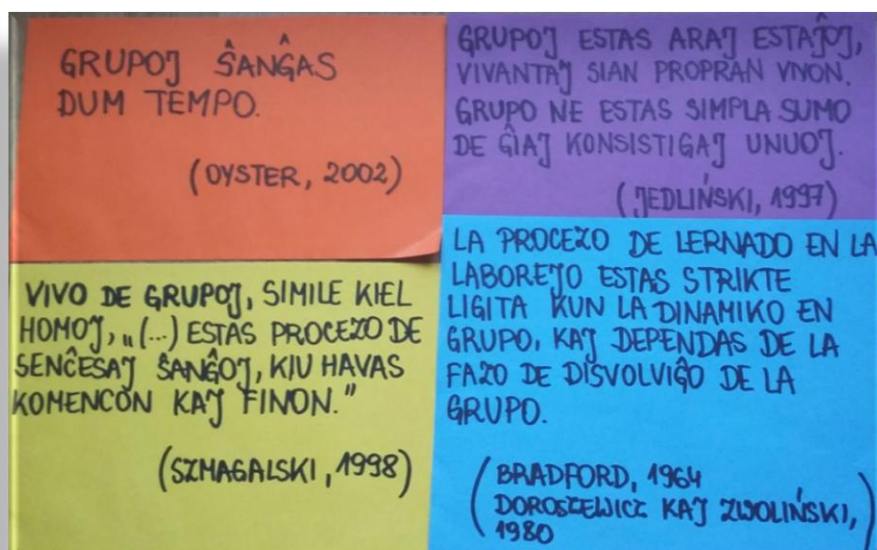 GRUPOJ ŜANĜAS
DUM TEMPO.
(OYSTER, 2002)
GRUPOJ ESTAS ARAJ ESTAĴOJ,
VIVANTAJ SIAN PROPRAN VIVON.
GRUPO NE ESTAS SIMPLA SUMO
DE ĜIAJ KONSISTIGAJ UNUOJ.
(JEDLIŃSKI, 1997)
VIVO DE GRUPOJ, SIMILE KIEL
HOMOJ, „(...) ESTAS PROCEZO DE
SENĈESAJ ŜANĜOJ, KIU HAVAS
KOMENCON KAJ FINON."
(SZMAGALSKI, 1998)
LA PROCEZO DE LERNADO EN LA
LABOREJO ESTAS STRIKTE
LIGITA KUN LA DINAMIKO EN
GRUPO, KAJ DEPENDAS DE LA
FAZO DE DISVOLVIĜO DE LA
GRUPO.
(BRADFORD, 1964
DOROSZEWICZ KAJ ZWOLIŃSKI,
1980)